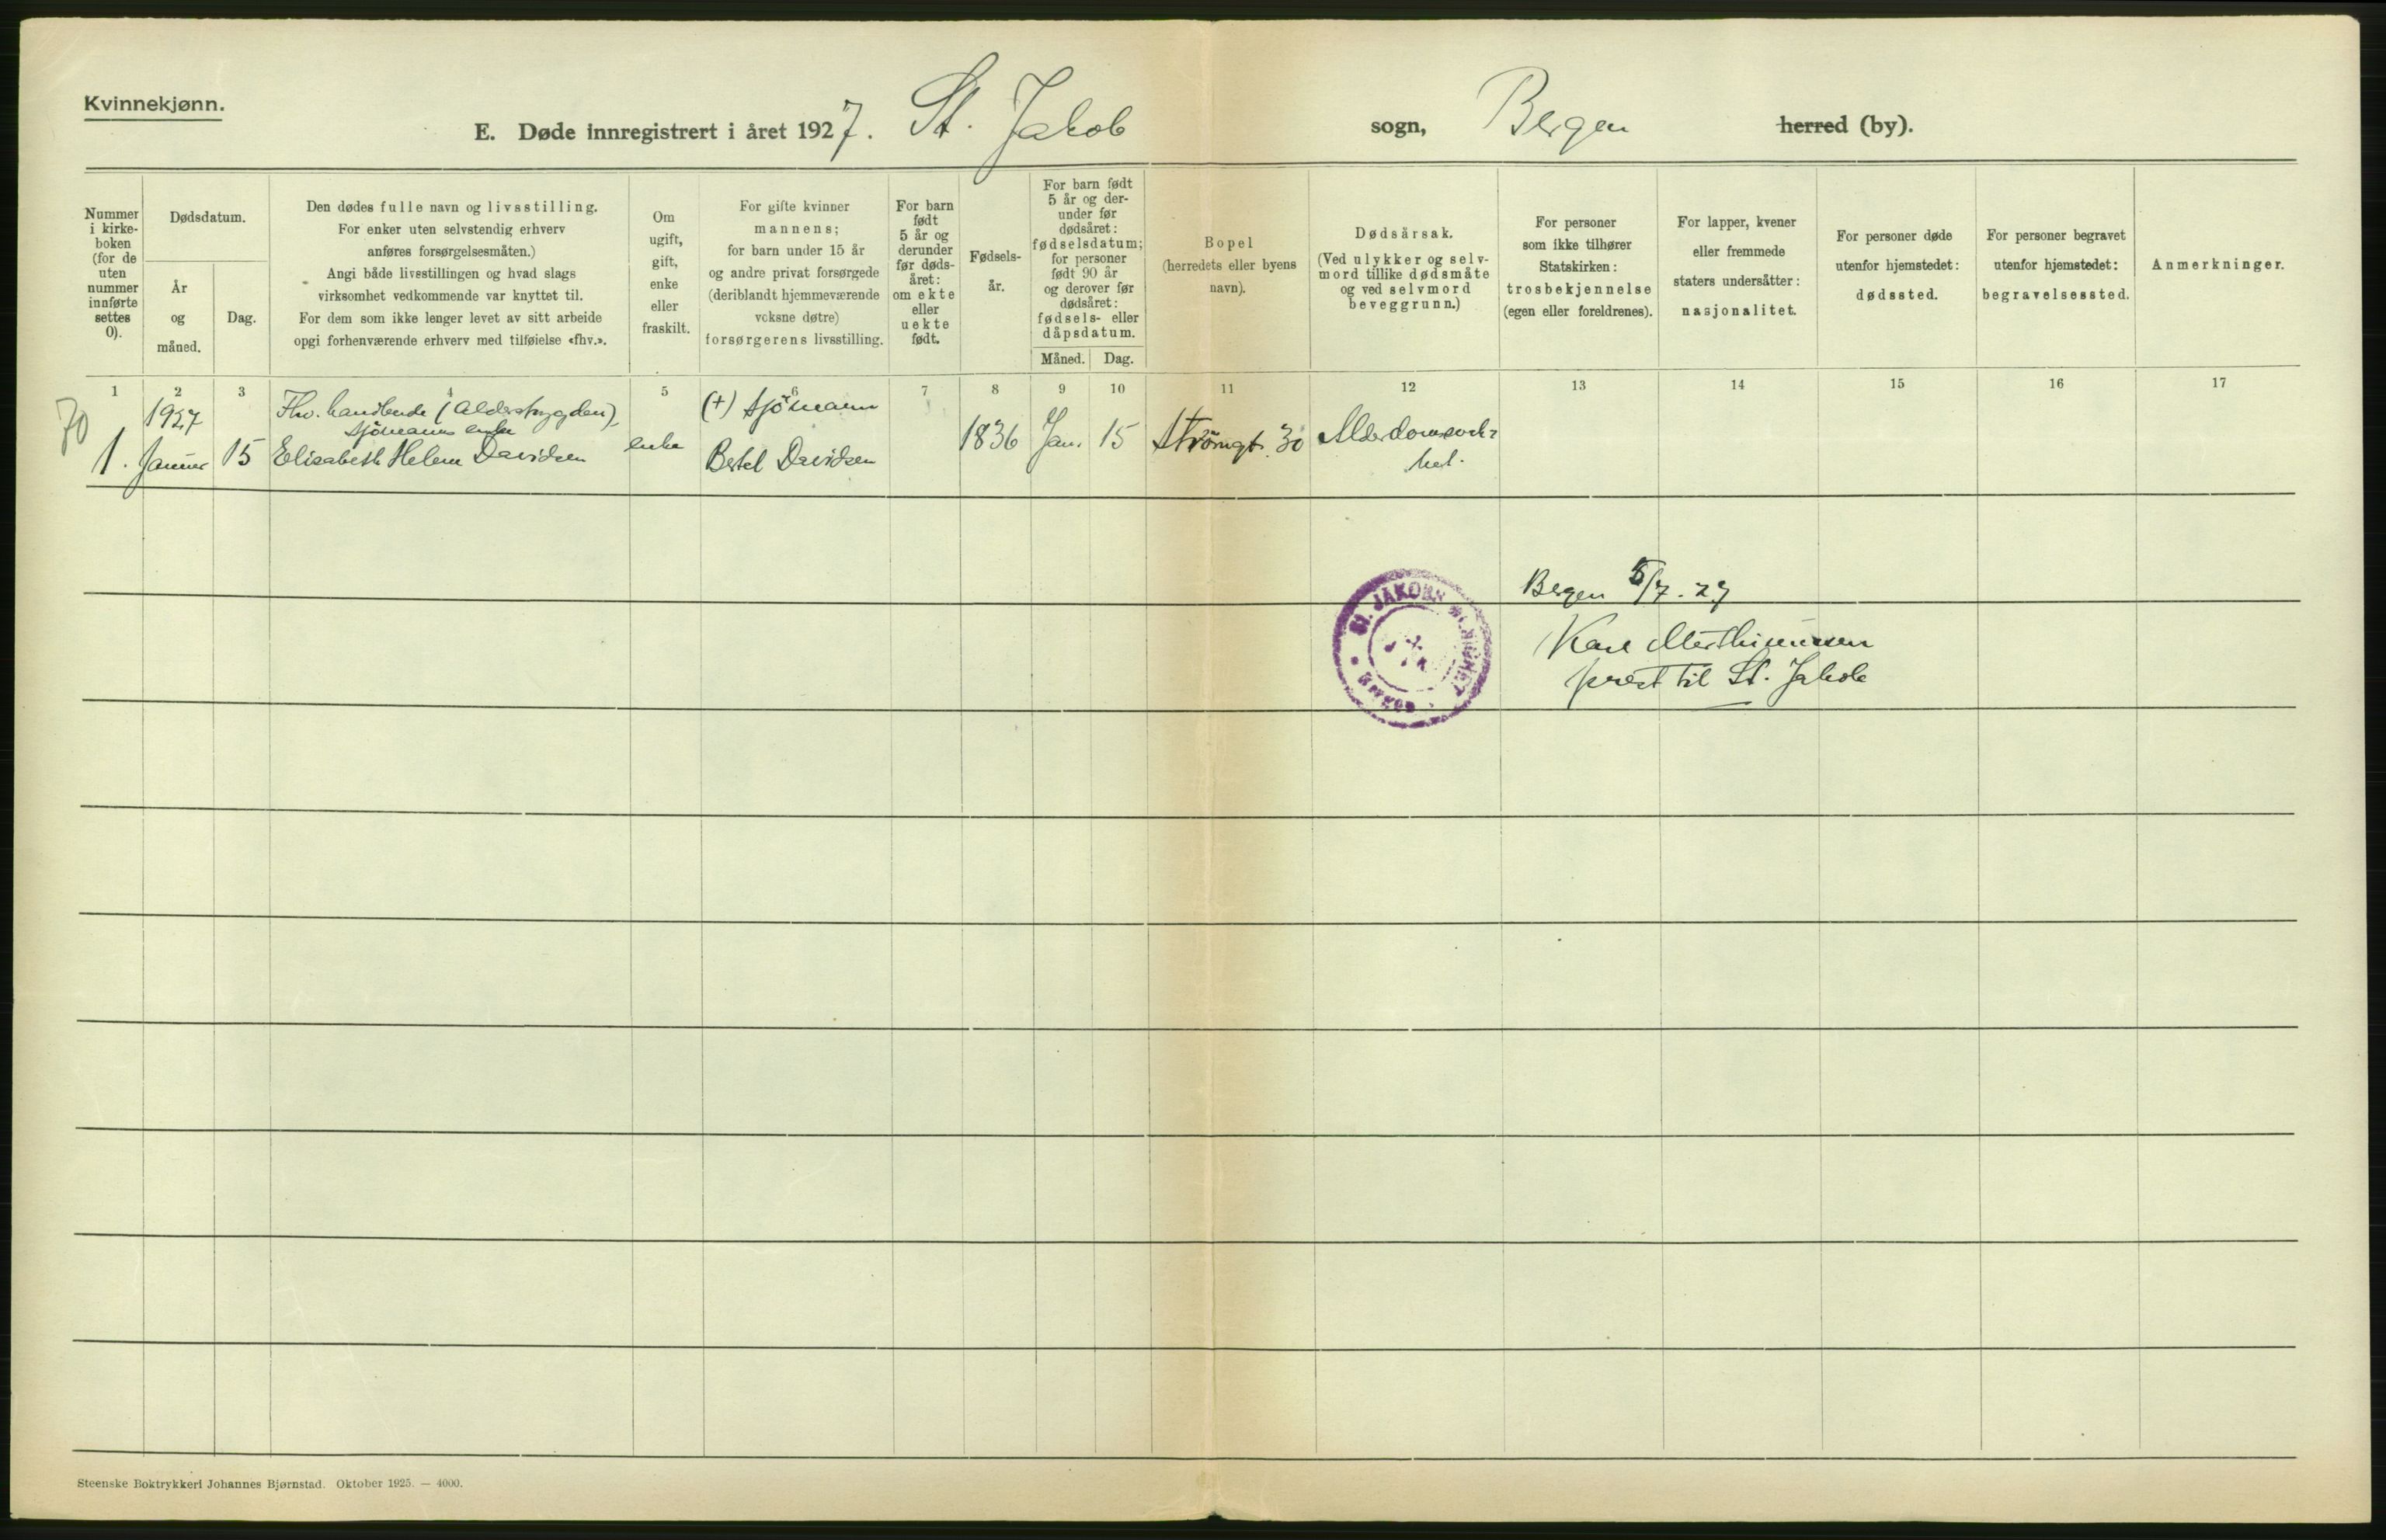 Kvinnekjønn.
E. Døde innregistrert i året 1927. St. Jakob sogn, Bergen herred (by).
Nummer i kirke-boken (for de uten nummer innførte settes 0).
Dødsdatum.
År og måned.
Dag.
Den dødes fulle navn og livsstilling.
For enker uten selvstendig erhverv
anføres forsørgelsesmåten.)
Angi både livsstillingen og hvad slags
virksomhet vedkommende var knyttet til.
For dem som ikke lenger levet av sitt arbeide
opgi forhenværende erhverv med tilføielse «fhv.».
Om
ugift,
gift,
enke
eller
fraskilt.
For gifte kvinner
mannens;
for barn under 15 år
og andre privat forsørgede
(deriblandt hjemmeværende
voksne døtre)
forsørgerens livsstilling.
For barn
født
5 år og
derunder
før døds-
året:
om ekte
eller
uekte
født.
Fødsels-
år.
For barn født
5 år og der-
under før
dødsåret:
fødselsdatum;
for personer
født 90 år
og derover før
dødsåret:
fødsels- eller
dåpsdatum.
Måned. Dag.
Bopel
(herredets eller byens
navn).
Dødsårsak.
(Ved ulykker og selv-
mord tillike dødsmåte
og ved selvmord
beveggrunn.)
For personer
som ikke tilhører
Statskirken:
trosbekjennelse
(egen eller foreldrenes).
For lapper, kvener
eller fremmede
staters undersåtter:
nasjonalitet.
For personer døde
utenfor hjemstedet:
dødssted.
For personer begravet
utenfor hjemstedet:
begravelsessted.
Anmerkninger.
1 2 3 4 5 6 7 8 9 10 11 12 13 14 15 16 17
70
1927 Fhv. (Alderstrygden) (+) Sjömann
sjömanns enke
1. Januar 15 Elisabeth Helene Davidsen enke Bertel Davidsen 1836 Jan. 15 Strömgt. 30 Alderdomssvak-
het.
St. JAKOBS
Bergen
Bergen 5/7. 27
prest til St. Jakob
Steenske Boktrykkeri Johannes Bjørnstad. Oktober 1925. — 4000.